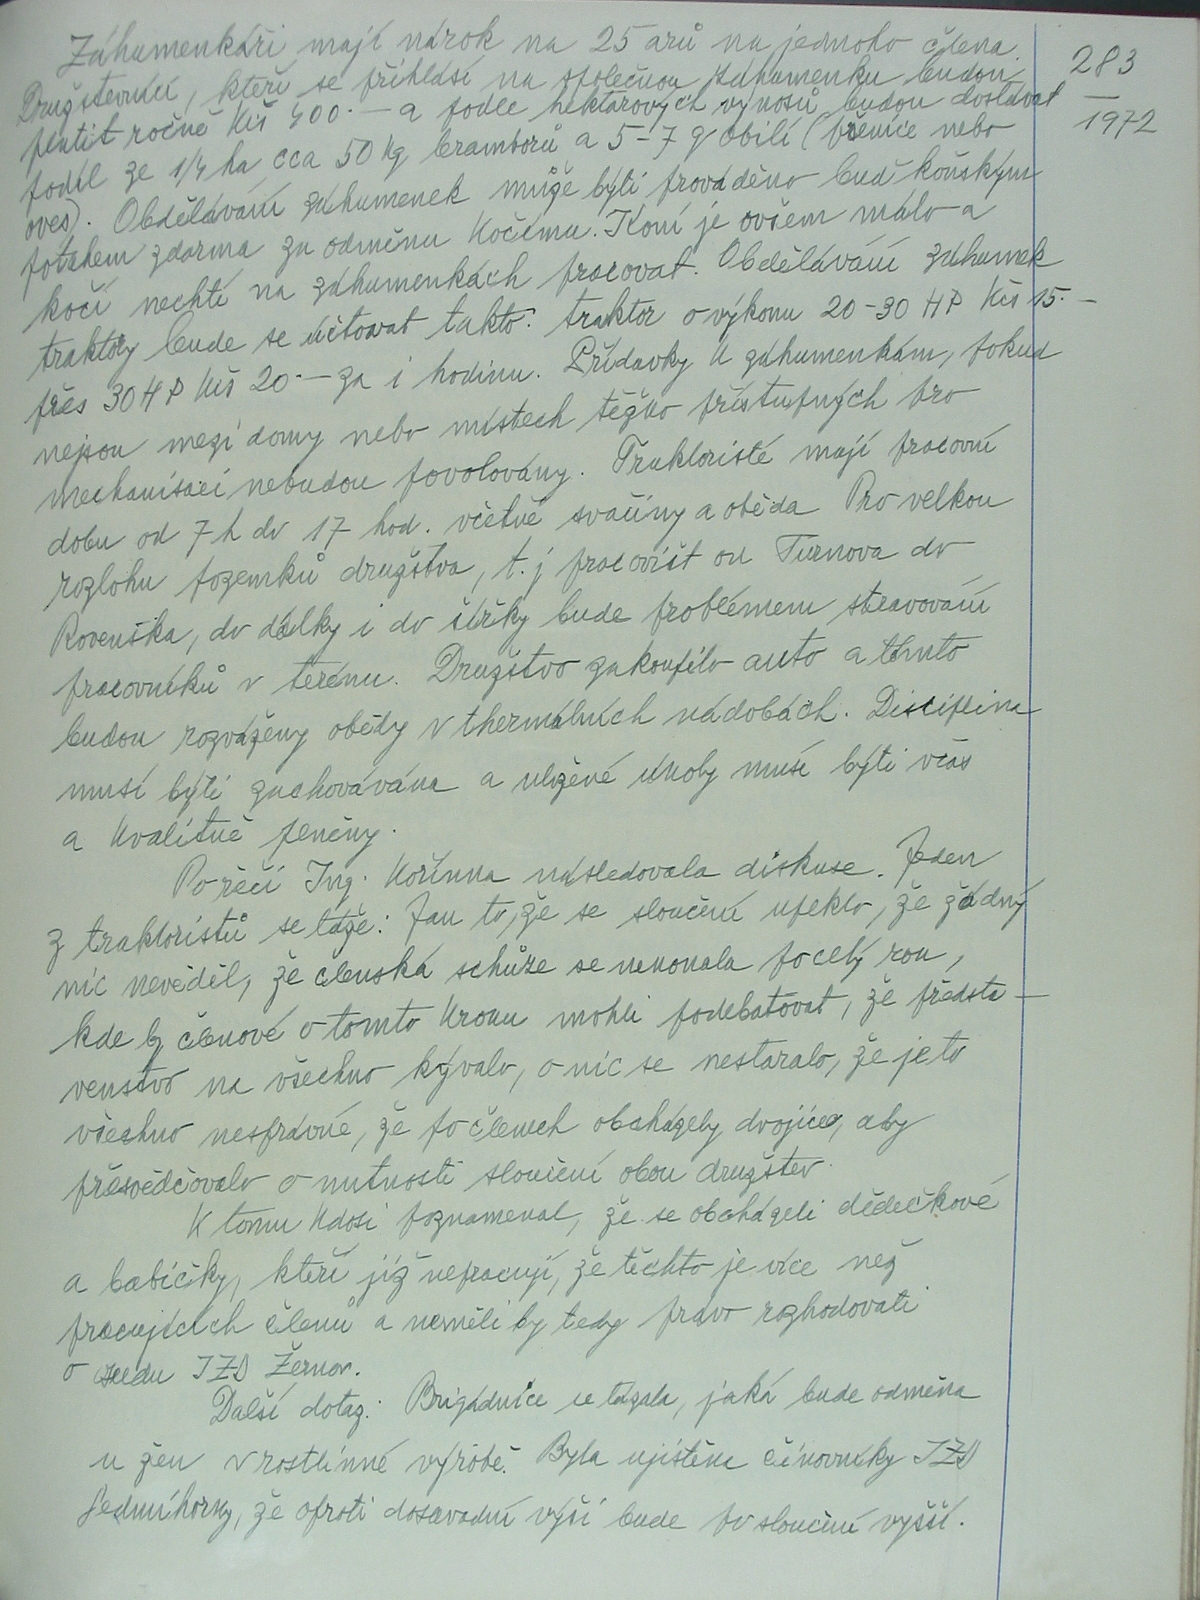 283
—
1972
Záhumenkáři mají nárok na 25 arů na jednoho člena.
Družstevníci, kteří se přihlásí na společnou záhumenku budou
platit ročně Kčs 400.— a podle hektarových výnosů budou dostávat
podíl ze 1/4 ha cca 50 kg bramborů a 5-7 q obilí (pšenice nebo
oves). Obdělávání záhumenek může býti prováděno buď koňským
potahem zdarma za odměnu kočímu. Koní je ovšem málo a
kočí nechtí na záhumenkách pracovat. Obdělávání záhumek
traktory bude se účtovat takto: traktor o výkonu 20-30 HP Kčs 15.—
přes 30 HP Kčs 20.— za 1 hodinu. Přídavky k záhumenkám, pokud
nejsou mezi domy nebo místech těžko přístupných pro
mechanisaci nebudou povolovány. Traktoristé mají pracovní
dobu od 7 h do 17 hod. včetně svačiny a oběda Pro velkou
rozlohu pozemků družstva, t. j pracovišť od Turnova do
Rovenska, do délky i do šířky bude problémem stravování
pracovníků v terénu. Družstvo zakoupilo auto a tímto
budou rozváženy obědy v thermálních nádobách. Disciplina
musí býti zachovávána a uložené úkoly musí býti včas
a kvalitně plněny.
Po řeči Ing. Kořínka následovala diskuse. Jeden
z traktoristů se táže: Jak to, že se sloučení upeklo, že žádný
nic nevěděl, že členská schůze se nekonala po celý rok,
kde by členové o tomto kroku mohli podebatovat, že předsta-
venstvo na všechno kývalo, o nic se nestaralo, že je to
všechno nesprávné, že po členech obcházely dvojice, aby
přesvědčovalo o nutnosti sloučení obou družstev.
K tomu kdosi poznamenal, že se obcházeli dědečkové
a babičky, kteří již nepracují, že těchto je více než
pracujících členů a neměli by tedy právo rozhodovati
o osudu JZD Žernov.
Další dotaz: Brigádnice se tázala, jaká bude odměna
u žen v rostlinné výrobě. Byla ujištěna činovníky JZD
Sedmihorky, že oproti dosavadní výši bude po sloučení vyšší.